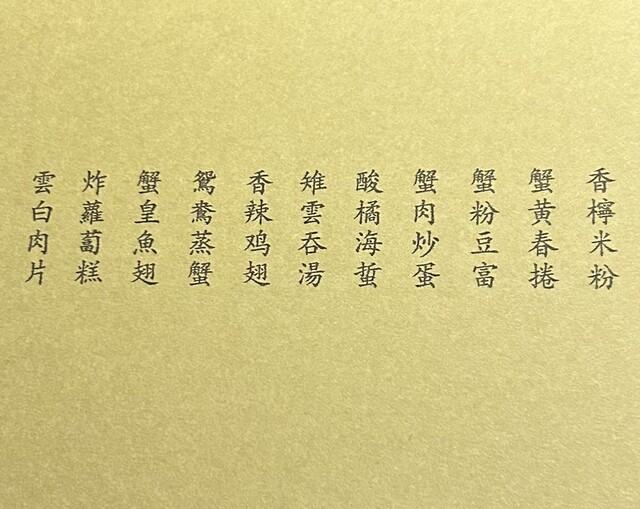 香檸米粉
蟹黄春捲
蟹粉豆富
蟹肉炒蛋
酸橘海蜇
雉雲吞湯
香辣鸡翅
鴛鴦蒸蟹
蟹皇魚翅
炸蘿蔔糕
雲白肉片